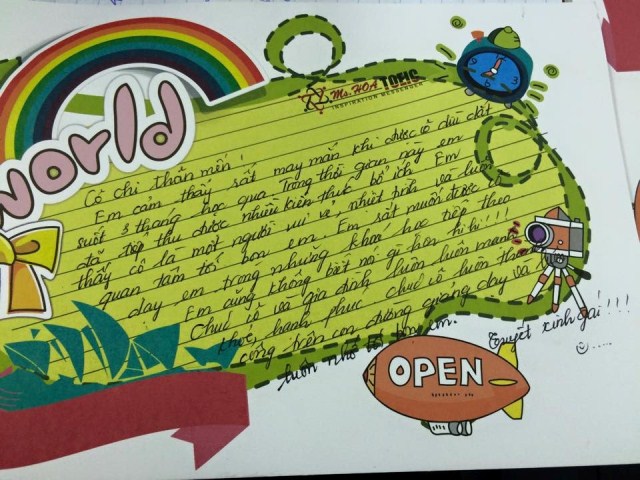 world
Ms. HOA TOEIC
INSPIRATION MESSENGER
Cô Chi thân mến!
Em cảm thấy rất may mắn khi được cô dìu dắt
suốt 3 tháng học qua. Trong thời gian này em
đã tiếp thu được nhiều kiến thức bổ ích. Em
thấy cô là một người vui vẻ, nhiệt tình và luôn
quan tâm tới bọn em. Em rất muốn được cô
dạy em trong những khoá học tiếp theo
Em cũng không biết nói gì hơn hi hi!!!
Chúc cô và gia đình luôn luôn mạnh
khoẻ, hạnh phúc. Chúc cô luôn thành
công trên con đường giảng dạy và
luôn nhớ tới em.
Tuyết xinh gái!!!
OPEN